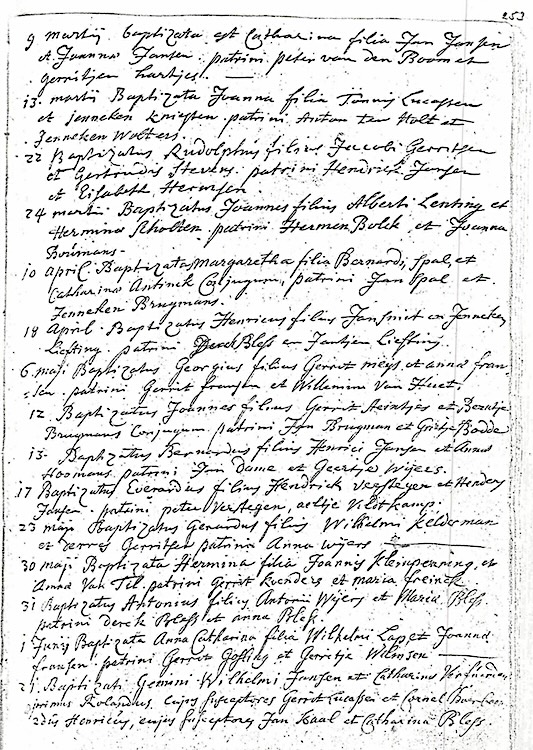 253
9 martij baptizata est Catharina filia Jan Jansen
et Joanna Jansen. patrini peter van den Boom et
gerritjen hartjes.
13. martij Baptizata Joanna filia Tonnis Lucassen
et jenneken kniesten. patrini Antan ten Holt et
Jenneken Wolters.
22 Baptizatus Rudolphus filius Jacobi Gerritsen
et Gertrudis Stevens. patrini Hendrick Jansen
et Elisabeth Hermsen.
24 martij Baptizatus Joannes filius Alberti Lenting et
Hermina Scholten. patrini Hermen Bolck et Joanna
Boumans.
10 april. Baptizata Margaretha filia Bernardi Spal, et
Catharina Antinck Conjugum, patrini Jan Spal et
Jenneken Brugmans.
18 April. Baptizatus Henricus filius Jan smit en Jenneken
Liefting. patrini Derck Bless en Jantjen Liefting.
6 maji Baptizatus Georgius filius Gerrit meys, et anna fran-
sen. patrini Gerrit fransen et Willemina Van Huet.
12 Baptizatus Joannes filius Gerrit Steintjes et Berntje
Brugmans Conjugum patrini Jan Brugman et Grietje Bodde
13. Baptizatus Bernardus filius Henrici Jansen et Anna
Hoomans. patrini Jan Dame et Geertje Wijers.
17 Baptizatus Everardus filius Hendrick verstegen et Henders
Jansen. patrini peter Verstegen, aeltje Veltkamp.
23 maji Baptizatus Gerardus filius Wilhelmi Kelderman
et Gerritsen patrina Anna wijers
30 maji Baptizata Hermina filia Joannis Kleinpenning, et
Anna Van Til. patrini Gerrit Kuenders et maria freinck
31 Baptizatus Antonius filius Antonii Wijers et Maria Bless
patrini derck Bless et anna Bless.
1 Junij Baptizata Anna Catharina filia Wilhelmi Lap et Joanna
fransen. patrini Gerrit Gosling et Gerritje Wilmsen
21. Baptizati Gemini Wilhelmi Jansen et Catharina
primus Rolandus. cujus susceptores Gerrit Lucassen et Cornel
2dus Henricus, cujus susceptores Jan Haal et Catharina Bless.